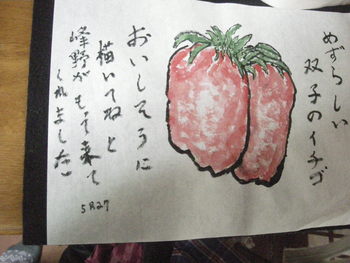 めずらしい
双子のイチゴ
おいしそうに
描いてねと
峰野がもって来て
くれました
5月27